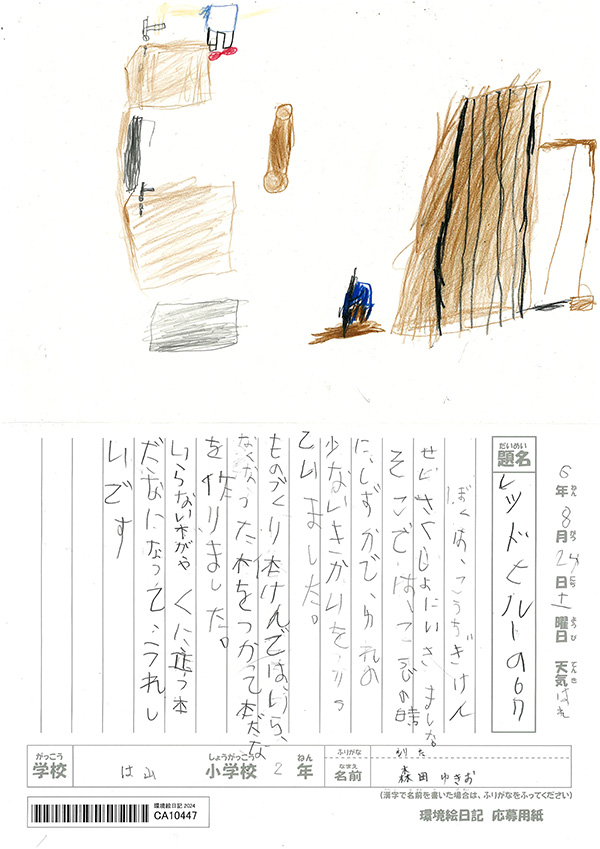 6年8月24日土曜日 天気はれ
ねん がつ にち ようび てんき
だいめい
題名
レッドヒルトの67
ぼくは、こうちぎけん
せどさくじょにいきました。
そこでは、こびの時
に、しずかで、ゆれの
少ないきかいをつかっ
ていました。
ものづくり体けんではいら
なくなった木をつかって本だな
を作りました。
いらない木がやくに立つ本
だなになってうれし
いです
がっこう
学校
は山
しょうがっこう
小学校
2
ねん
年
ふりがな
りた
なまえ
名前
森田 ゆきお
(漢字で名前を書いた場合は、ふりがなをふってください)
環境絵日記2024
CA10447
環境絵日記 応募用紙